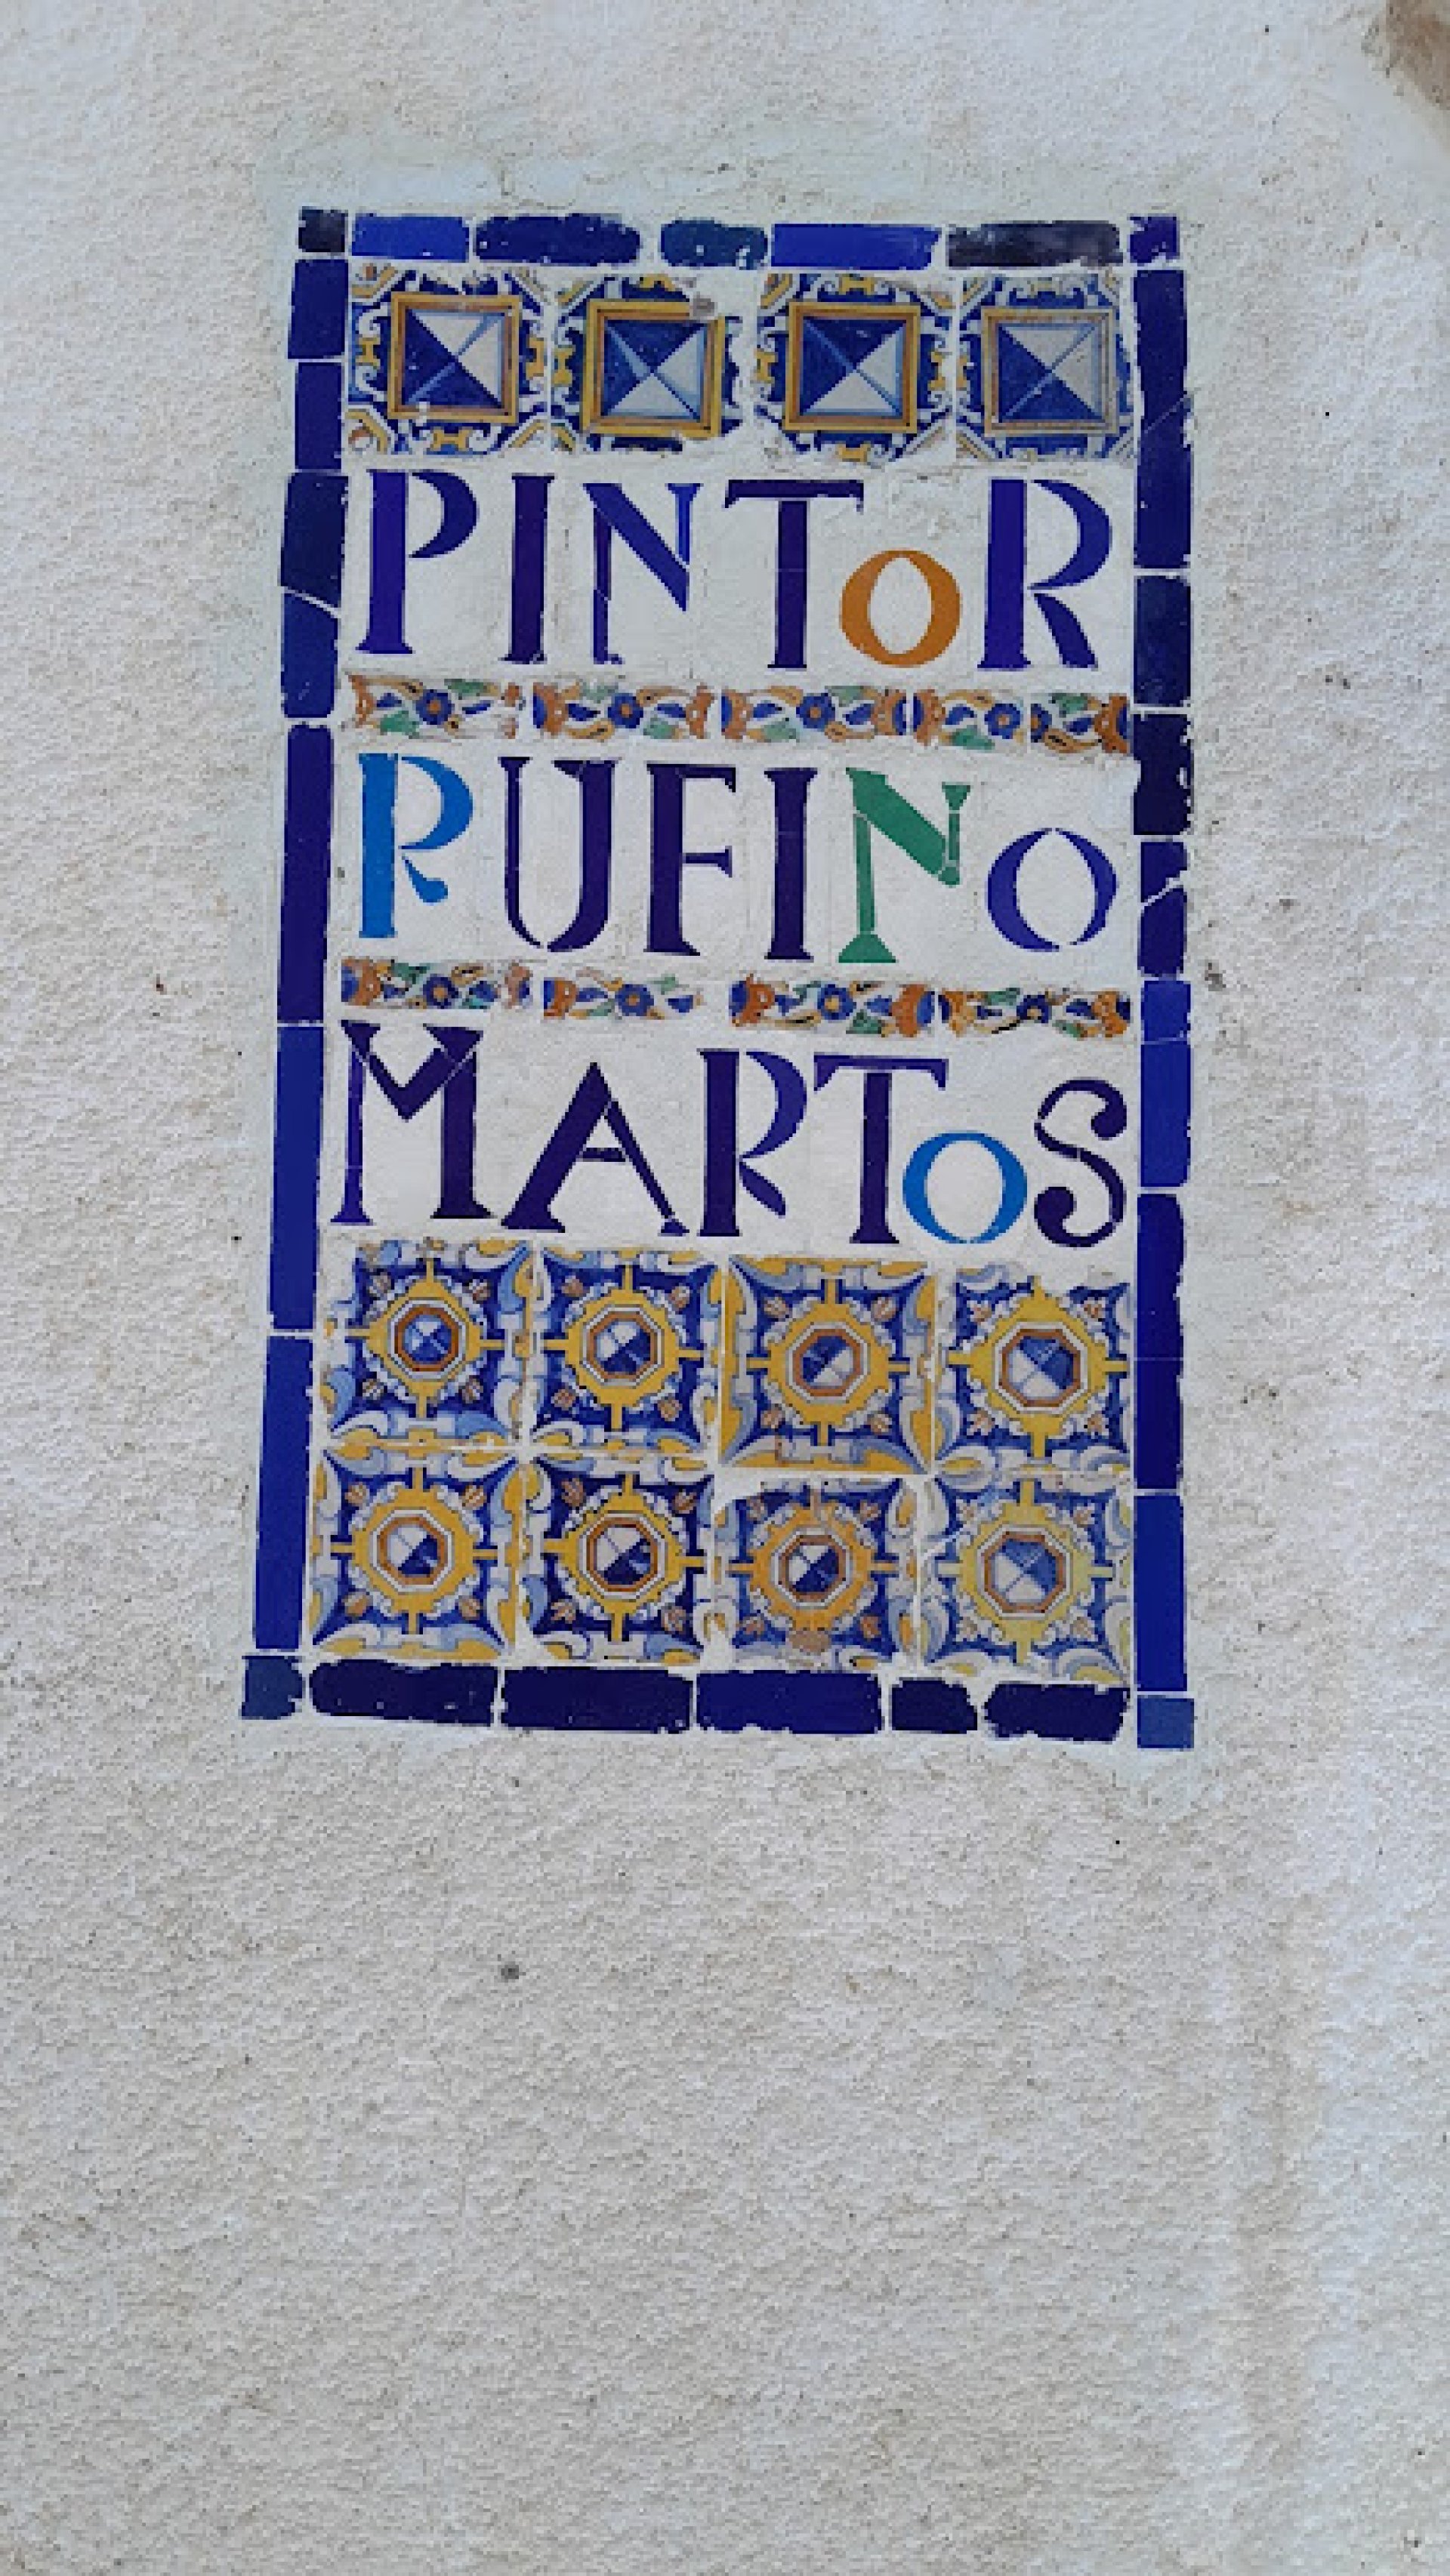 PINToR
RUFINo
MARToS